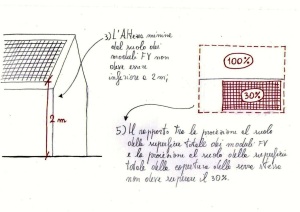 3) L'Altezza minima
dal suolo dei
moduli FV non
deve essere
inferiore a 2 m;
100%
30%
2 m
5) Il rapporto tra la proiezione al suolo
della superficie totale dei moduli FV
e la proiezione al suolo della superficie
totale della copertura della serra stessa
non deve superare il 30%.